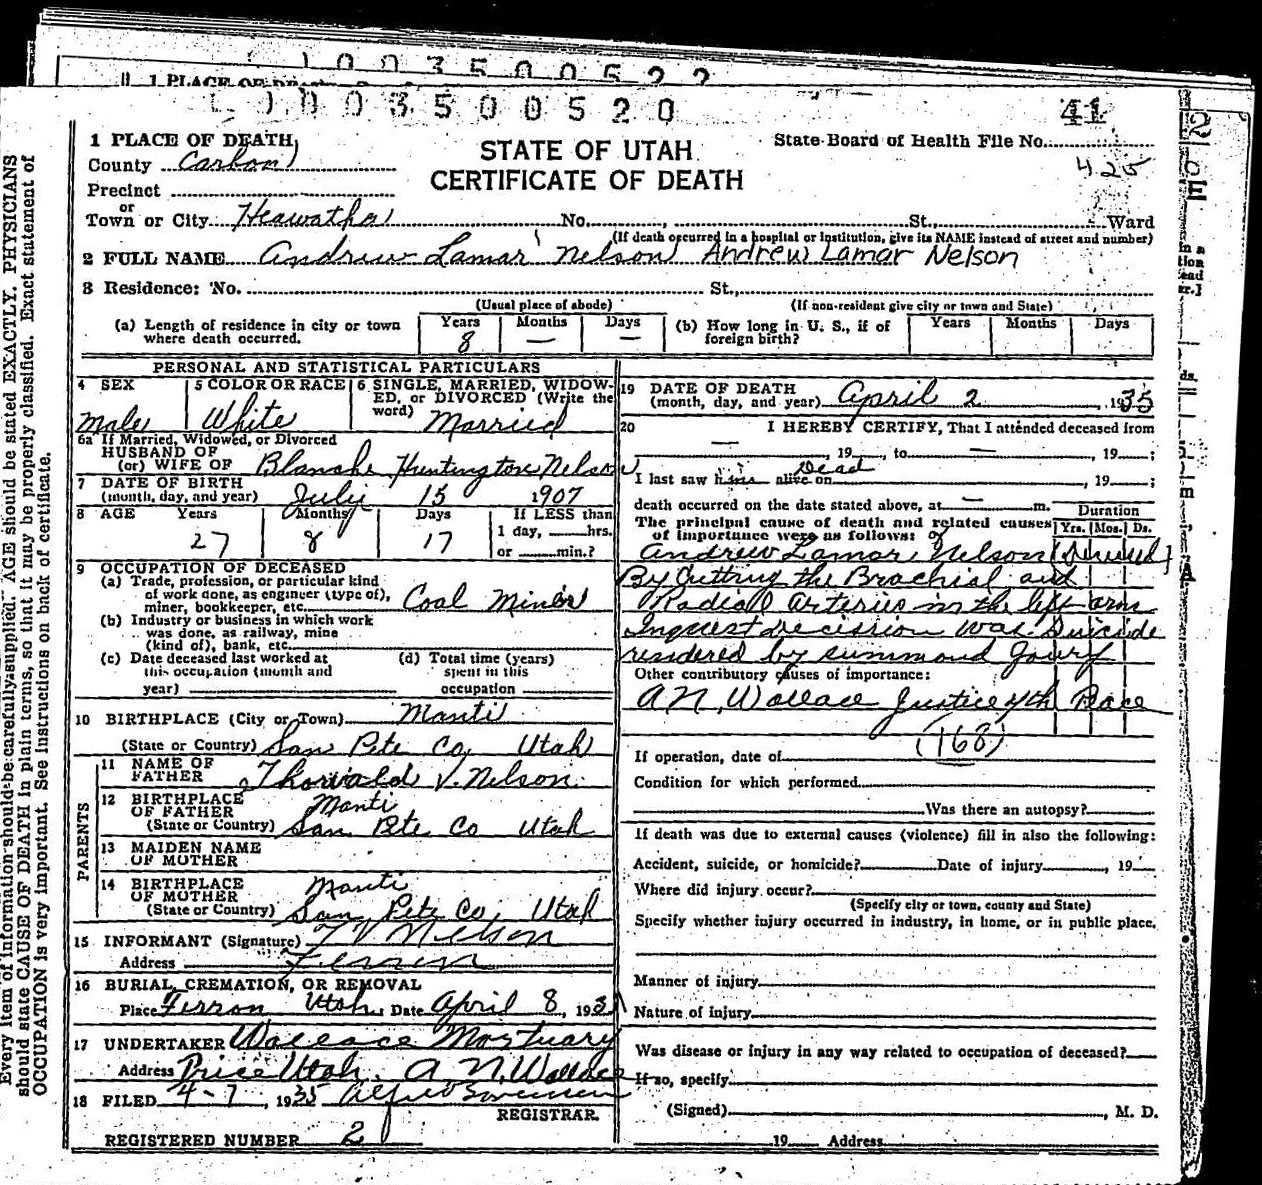 1 PLACE OF DEATH
1 0 0 3 5 0 0 5 2 2
1 0 0 3 5 0 0 5 2 0
41
1 PLACE OF DEATH
County Carbon
Precinct
or
Town or City Heawatha No. , St., Ward
STATE OF UTAH
CERTIFICATE OF DEATH
State Board of Health File No.
425
(If death occurred in a hospital or institution, give its NAME instead of street and number)
2 FULL NAME Andrew Lamar Nelson Andrew Lamar Nelson
3 Residence: No. St.,
(Usual place of abode) (If non-resident give city or town and State)
(a) Length of residence in city or town where death occurred. Years 8 Months — Days — (b) How long in U. S., if of foreign birth? Years Months Days
PERSONAL AND STATISTICAL PARTICULARS
4 SEX Male
5 COLOR OR RACE White
6 SINGLE, MARRIED, WIDOW-
ED, or DIVORCED (Write the
word) Married
6a If Married, Widowed, or Divorced
HUSBAND OF
(or) WIFE OF Blanche Huntington Nelson
7 DATE OF BIRTH
(month, day, and year) July 15 1907
8 AGE Years Months Days If LESS than
27 8 17 1 day, hrs.
or min.?
9 OCCUPATION OF DECEASED
(a) Trade, profession, or particular kind
of work done, as engineer (type of),
miner, bookkeeper, etc. Coal Miner
(b) Industry or business in which work
was done, as railway, mine
(kind of), bank, etc.
(c) Date deceased last worked at
this occupation (month and
year)
(d) Total time (years)
spent in this
occupation
10 BIRTHPLACE (City or Town) Manti
(State or Country) San Pete Co, Utah
PARENTS
11 NAME OF
FATHER Thorwald V. Nelson
12 BIRTHPLACE
OF FATHER Manti
(State or Country) San Pete Co Utah
13 MAIDEN NAME
OF MOTHER
14 BIRTHPLACE
OF MOTHER Manti
(State or Country) San Pete Co, Utah
15 INFORMANT (Signature) T V Nelson
Address Ferron
16 BURIAL, CREMATION, OR REMOVAL
Place Ferron Utah. Date April 8, 193
17 UNDERTAKER Wallace Mortuary
Address Price Utah. A N. Wallace
18 FILED 4-7, 1935 Alfred Sorensen
REGISTRAR.
REGISTERED NUMBER 2
19 DATE OF DEATH
(month, day, and year) April 2, 1935
20 I HEREBY CERTIFY, That I attended deceased from
—, 19 , to —, 19 ;
I last saw him alive on Dead , 19 ;
death occurred on the date stated above, at — m.
The principal cause of death and related causes
of importance were as follows: of
Duration
Yrs. Mos. Ds.
Andrew Lamar Nelson
By Cutting the Brachial and
Radial Arteries in the left arm
Inquest decission was Suicide
rendered by summond Joury
Other contributory causes of importance:
A. N. Wallace Justice of th Peace
(168)
If operation, date of
Condition for which performed
Was there an autopsy?
If death was due to external causes (violence) fill in also the following:
Accident, suicide, or homicide? Date of injury , 19
Where did injury occur?
(Specify city or town, county and State)
Specify whether injury occurred in industry, in home, or in public place.
Manner of injury
Nature of injury
Was disease or injury in any way related to occupation of deceased?
If so, specify
(Signed) , M. D.
19 Address
Every item of information should be carefully supplied. AGE should be stated EXACTLY. PHYSICIANS
should state CAUSE OF DEATH in plain terms, so that it may be properly classified. Exact statement of
OCCUPATION is very important. See instructions on back of certificate.